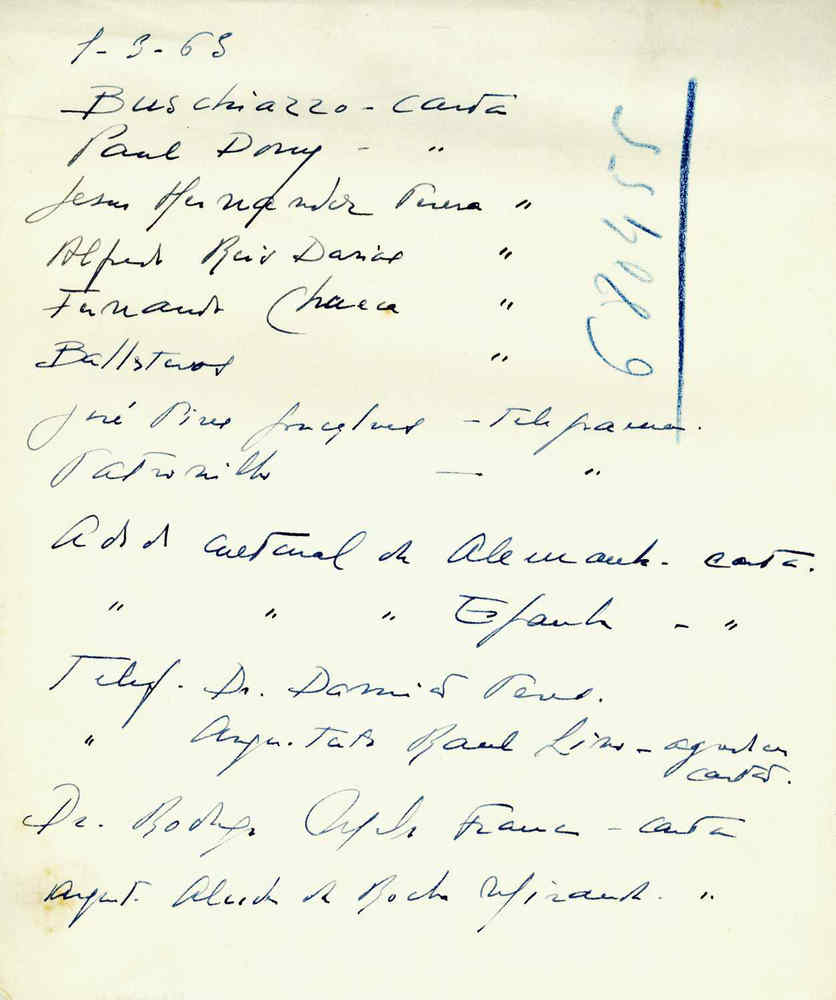 1-3-63
Buschiazzo - carta
Paul Dony - "
Jesus Hernandez Perera "
Alfredo Ruiz "
Fernando Chueca "
Ballesteros "
José Pires Gonçalves - telegrama.
Patrocinillo — "
Adido cultural da Alemanha - carta.
" " " Espanha - "
Telef. Dr. Damião Peres.
" Arquitecto Raul Lino - agradecer
carta.
Dr. Rodrigo Franco - carta
Arquit. Alcides da Rocha Miranda. "
680455